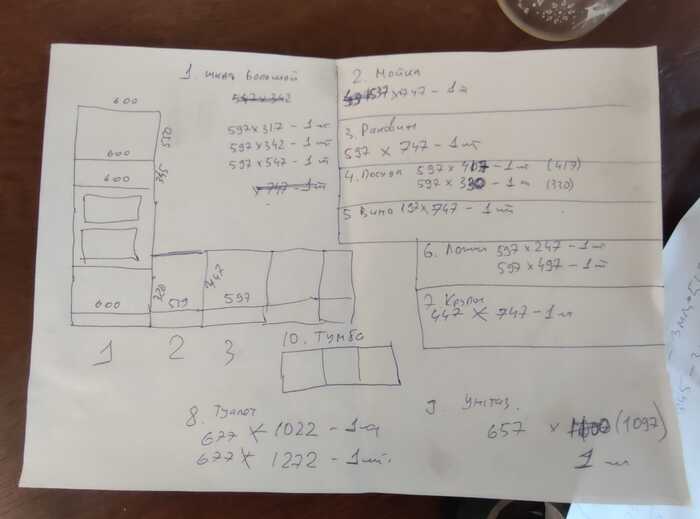 1. шкаф большой
597 x 317 - 1 шт
597 x 342 - 1 шт
597 x 547 - 1 шт
x 747 - 1 шт
600
550
600
600
345
600
320
519
447
597
1 2 3
2. Мойка
537 x 747 - 1 шт
3. Раковина
597 x 747 - 1 шт
4. Посуда 597 x 417 - 1 шт (417)
597 x 320 - 1 шт (320)
5 Вино 197 x 747 - 1 шт
6. Ложки 597 x 247 - 1 шт
597 x 497 - 1 шт
7. Крупы
447 x 747 - 1 шт
10. Тумба
8. Туалет
677 x 1022 - 1 шт
677 x 1272 - 1 шт.
9 Унитаз.
657 x (1097)
1 шт